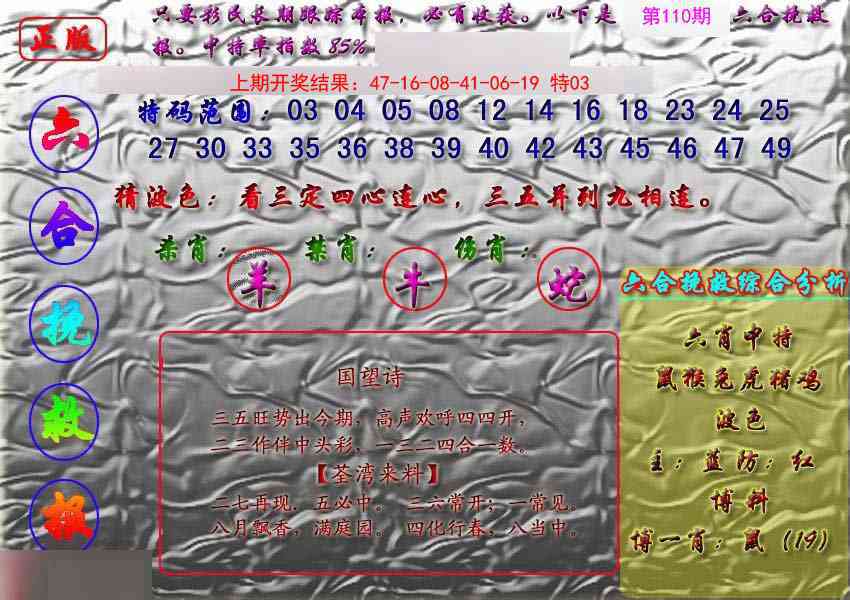 正版
只要彩民长期跟踪本报，必有收获。以下是 第110期 六合挽救
报。中特率指数85%
上期开奖结果：47-16-08-41-06-19 特03
六合挽救报
特码范围：03 04 05 08 12 14 16 18 23 24 25
27 30 33 35 36 38 39 40 42 43 45 46 47 49
猜波色：看三定四心连心，三五并到九相连。
杀肖：羊 禁肖：牛 伤肖：蛇
国望诗
三五旺势出今期，高声欢呼四四开，
二三作伴中头彩，一三二四合一数。
【荃湾来料】
二七再现，五必中。三六常开；一常见。
八月飘香，满庭园。四化行春，八当中。
六合挽救综合分析
六肖中特
鼠猴兔虎猪鸡
波色
主：蓝防：红
博料
博一肖：鼠（19）